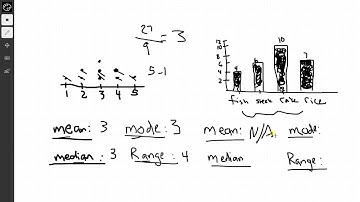 27
9
= 3
5-1
1 2 3 4 5
12
10
8
6
4
2
10
7
fish steak cake rice
mean: 3 mode: 3 mean: N/A mode:
median: 3 Range: 4 median Range: